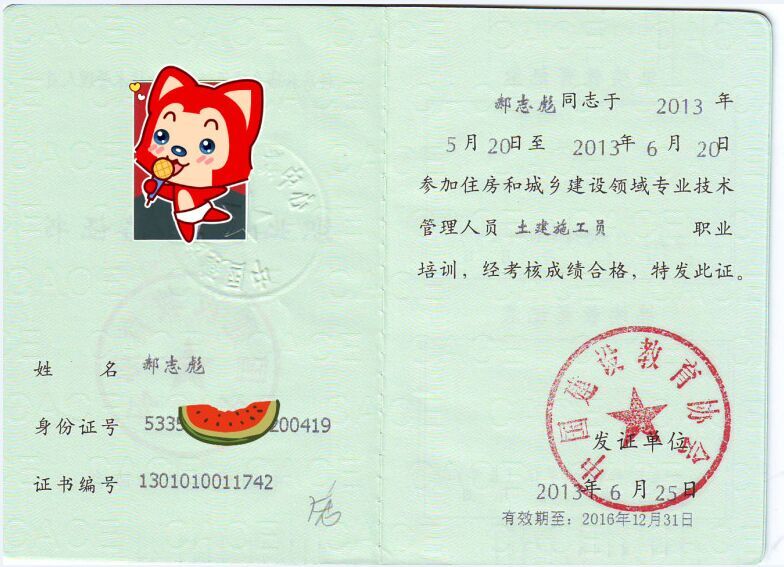 姓 名 郝志彪
身份证号 5335 200419
证书编号 1301010011742
郝志彪同志于 2013 年
5 月 20日至 2013年 6 月 20日
参加住房和城乡建设领域专业技术
管理人员 土建施工员 职业
培训，经考核成绩合格，特发此证。
中国建设教育协会
发证单位
2013年 6 月 25日
有效期至：2016年12月31日